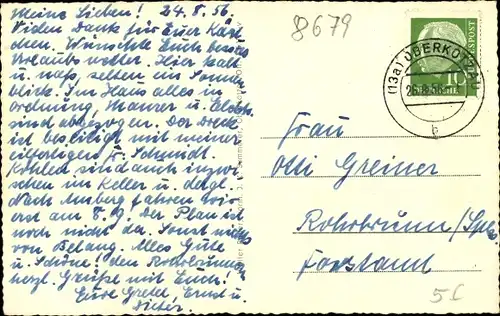 Meine Lieben! 24.8.56
Vielen Dank für Euer Kärt
chen. Wünschte Euch bestes
Urlaubswetter. Hier kalt
u. naß, selten ein Sonnen
blick. Im Haus alles in
ordnung, Maurer u. Elektr.
sind abgezogen. Der Dreck
ist beseitigt mit meiner
eilfertigen Fr. Schmidt.
Kohlen sind auch inzwi
schen im Keller u. dgl.
Nach Amberg fahren wir
erst am 8.9. Der Plan ist
noch nicht da. Sonst nichts
von Belang. Alles Gute
u. Schöne! den Rohrbrunnern
herzl. Grüße mit Euch!
Eure Gretel, Ernst u.
Dieter.
8679
(13a) OBERKOTZAU
25.8.56
b
10
BUNDESPOST
Frau
Otti Greiner
Rohrbrunn/Spess.
Forstamt
5C